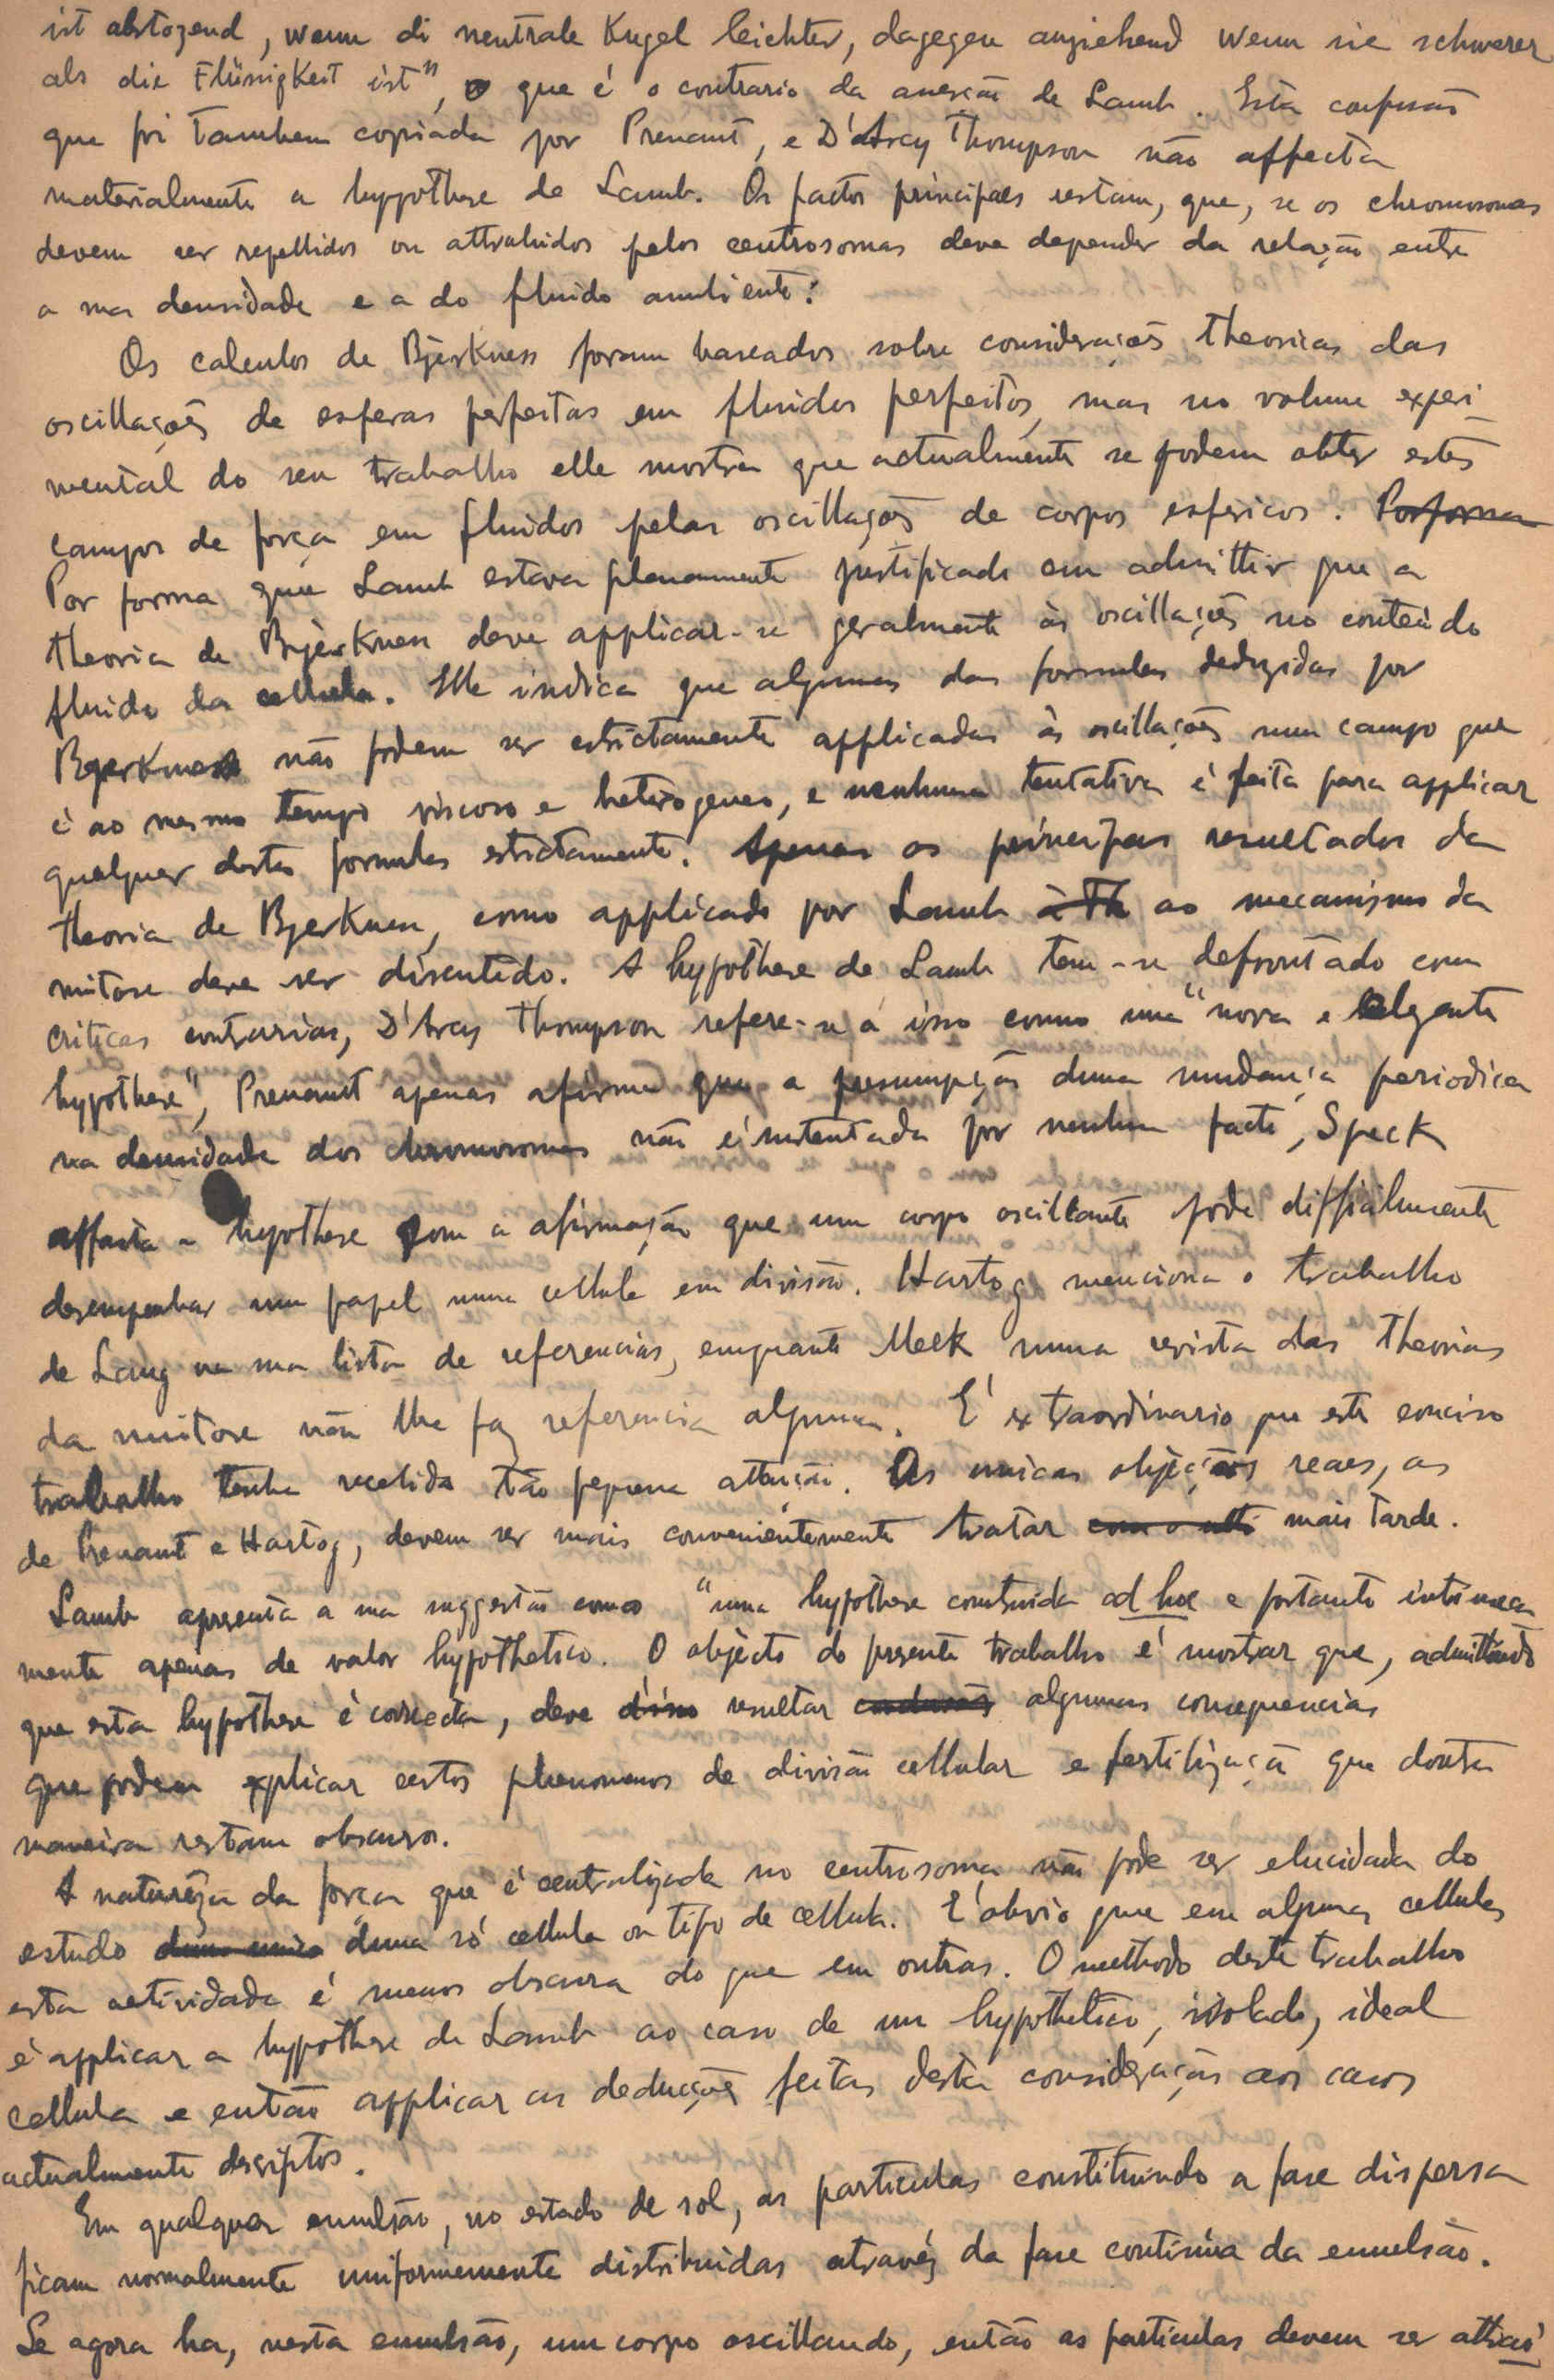 ist abstozend, wenn di neutrale Kugel leichter, dagegen anziehend wenn sie schwerer
als die Flüssigkeit ist", o que é o contrario da asserção de Lamb. Esta confusão
que foi tambem copiada por Prenant, e D'Arcy Thompson não affecta
materialmente a hypothese de Lamb. Os factos principaes restam, que, se os chromosomas
devem ser repellidos ou attrahidos pelos centrosomas deve depender da relação entre
a sua densidade e a do fluido ambiente.
Os calculos de Bjerkness foram baseados sobre considerações theoricas das
oscillações de esferas perfeitas em fluidos perfeitos, mas no volume experi-
mental do seu trabalho elle mostra que actualmente se podem obter estes
campos de força em fluidos pelas oscillações de corpos esfericos. Por forma
Por forma que Lamb estava plenamente justificado em admittir que a
theoria de Bjerknen deve applicar-se geralmente às oscillações no conteùdo
fluido da cellula. Elle indica que algumas das formulas deduzidas por
Bjerkness não podem ser estrictamente applicadas às oscillações num campo que
é ao mesmo tempo viscoso e heterogeneo, e nenhuma tentativa é feita para applicar
qualquer destas formulas estrictamente. Apenas os principaes resultados da
theoria de Bjerknen, como applicado por Lamb à Th ao mecanismo da
mitose deve ser discutido. A hypothese de Lamb tem-se defrontado com
criticas contrarias, D'Arcy Thompson refere-se a isso como uma "nova e elegante
hypothese", Prenant apenas afirma que a presumpção duma mudança periodica
na densidade dos chromosomas não é sustentada por nenhum facto, Speck
affasta a hypothese com a afirmação que um corpo oscillante póde difficilmente
desempenhar um papel numa cellula em divisão. Hartog menciona o trabalho
de Lamg na sua lista de referencias, emquanto Meek numa revista das theorias
da mitose não lhe faz referencia alguma. É extraordinario que este conciso
trabalho tenha recebido tão pequena attenção. As unicas objecções reaes, as
de Prenant e Hartog, devem ser mais convenientemente tratar mais tarde.
Lamb apresenta a sua suggestão como "uma hypothese construida ad hoc e portanto intrinseca
mente apenas de valor hypothetico. O objecto do presente trabalho é mostrar que, admittindo
que esta hypothese é correcta, deve disso resultar algumas consequencias
que podem explicar certos phenomenos de divisão cellular e fertilização que doutra
maneira restam obscuros.
A naturêza da força que é centralizada no centrosoma não pode ser elucidada do
estudo duma unica duma só cellula ou tipo de cellula. É obvio que em algumas cellulas
esta actividade é menos obscura do que em outras. O methodo deste trabalho
é applicar a hypothese de Lamb ao caso de um hypothetico, isolado, ideal
cellula e então applicar as deducções feitas desta consideração aos casos
actualmente descriptos.
Em qualquer emulsão, no estado de sol, as particulas constituindo a fase dispersa
ficam normalmente uniformemente distribuidas através da fase continua da emulsão.
Se agora ha, nesta emulsão, um corpo oscillando, então as particulas devem ser attraí